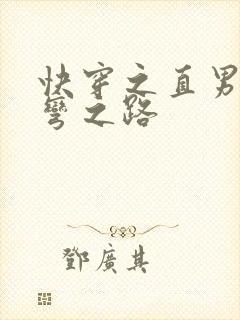 快穿之直男
彎之路
鄧廣其